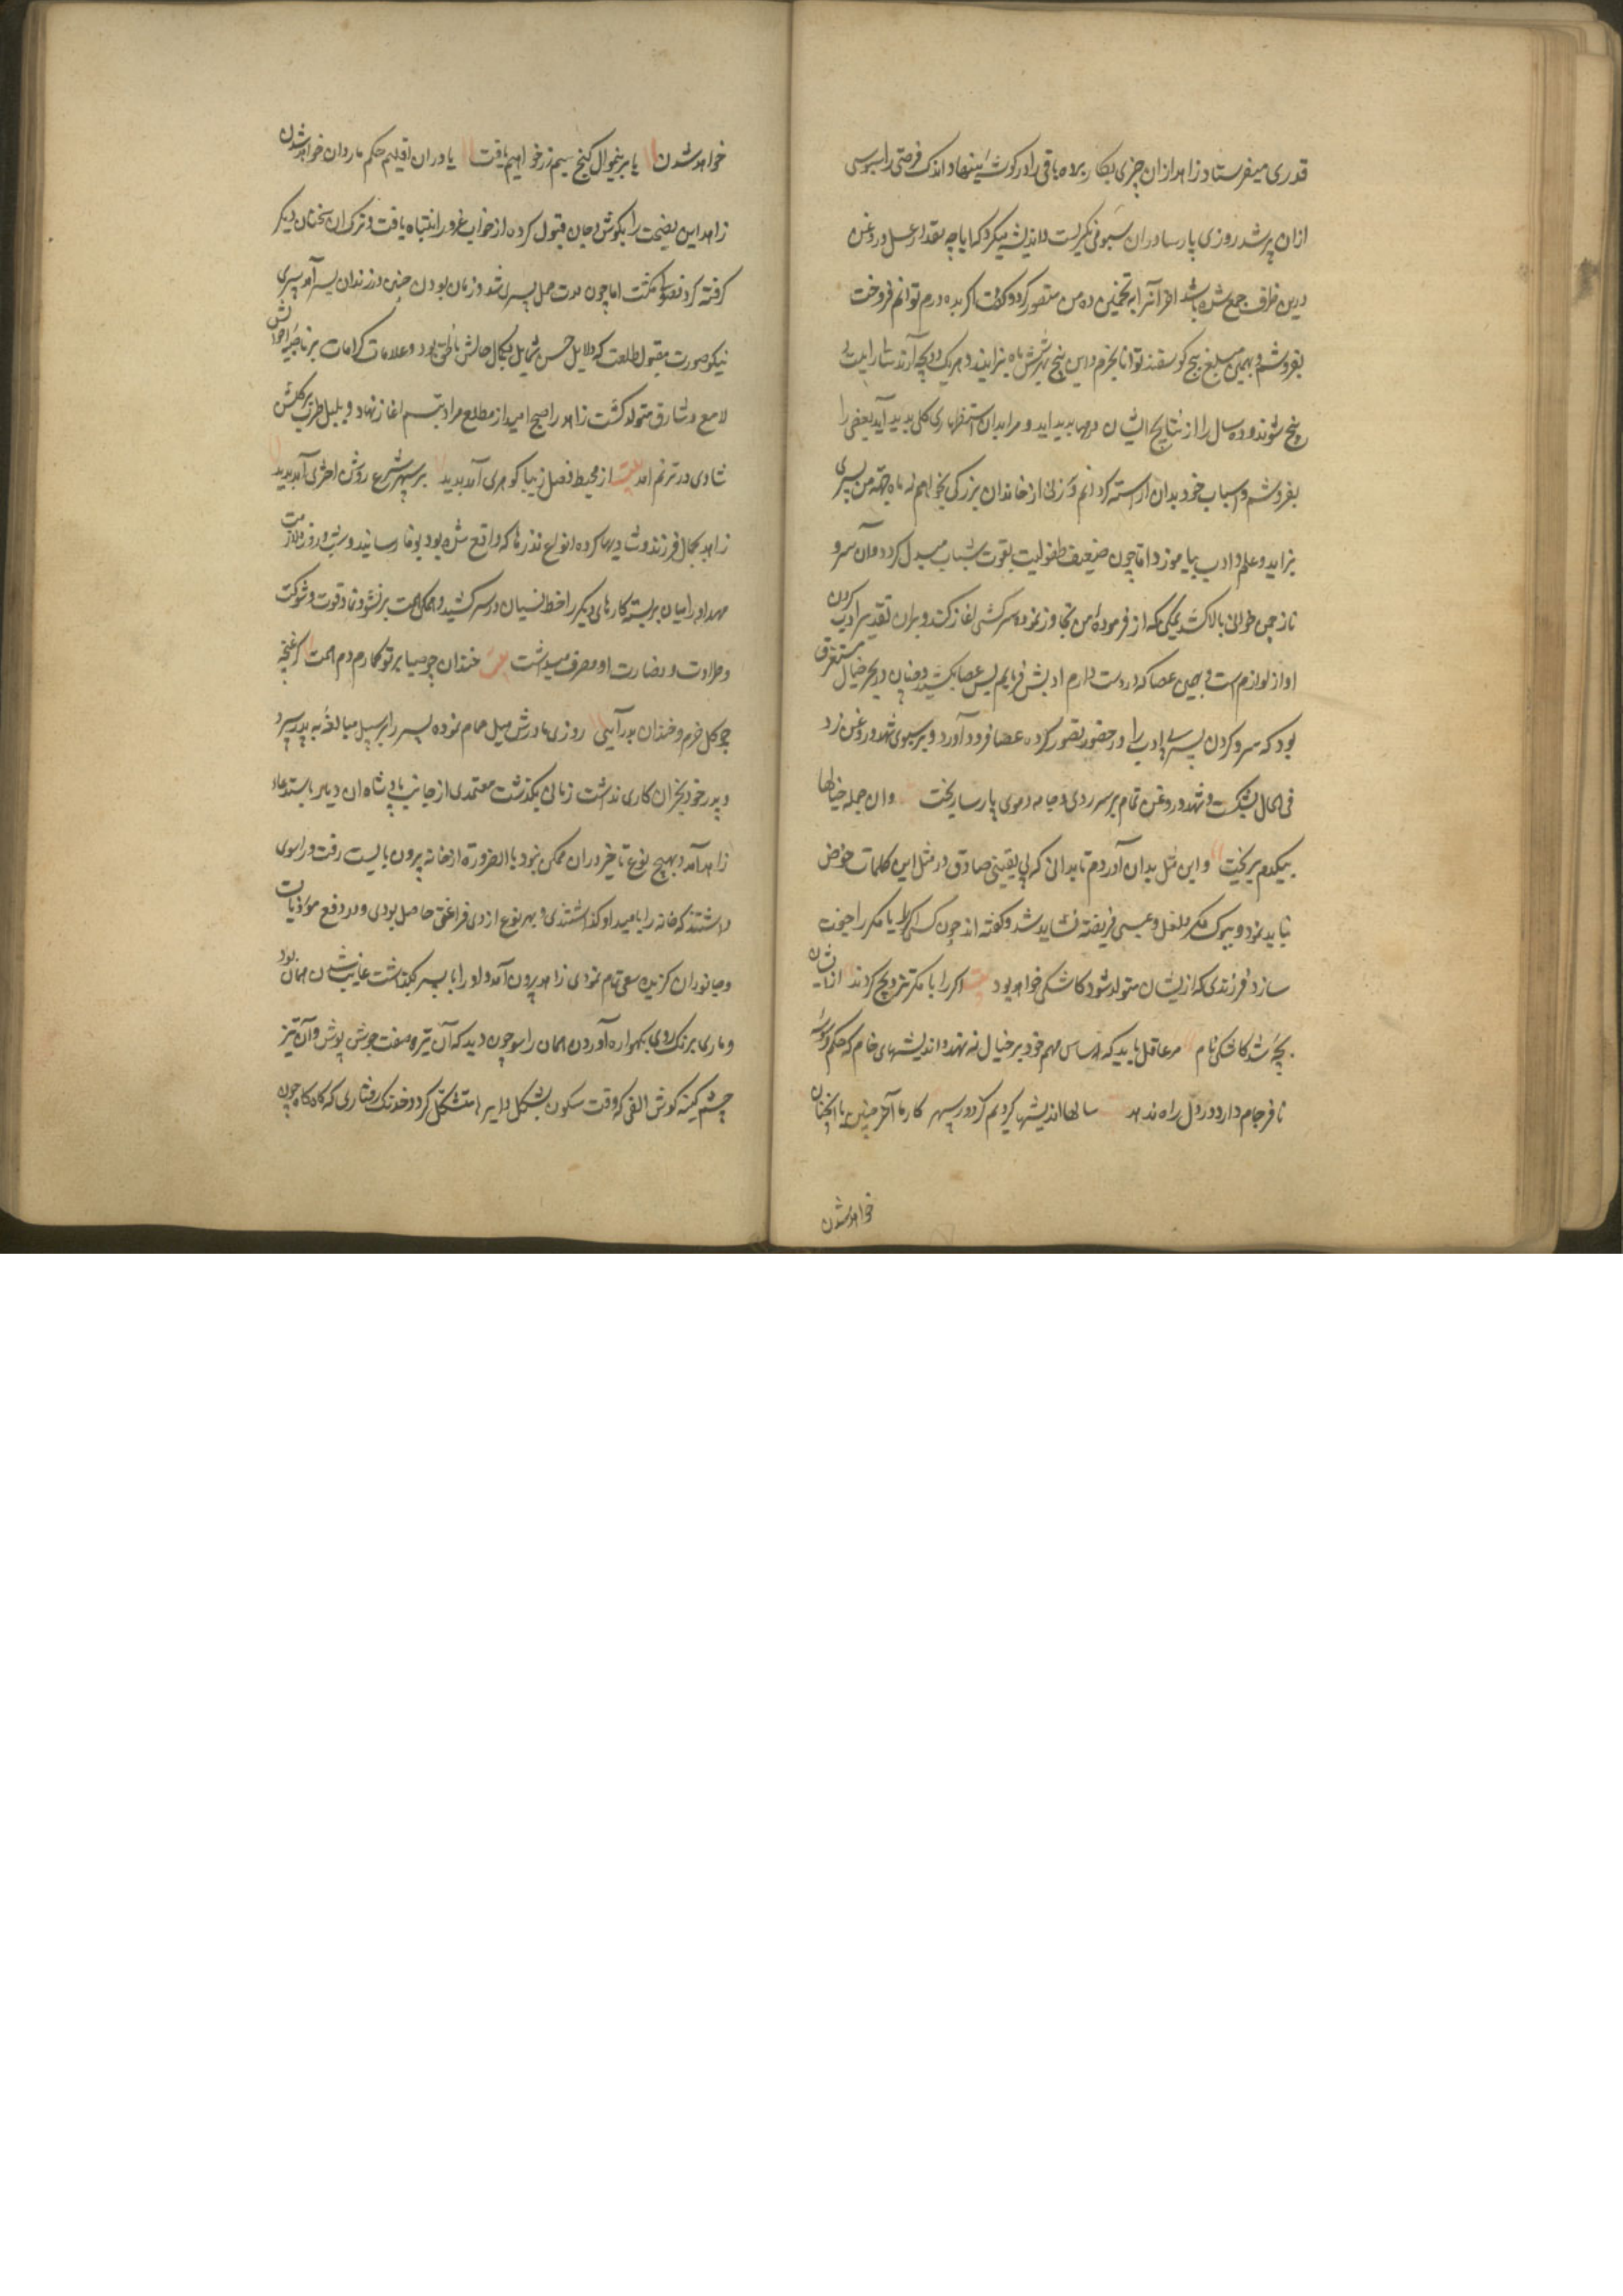 قدری میفرستاد زاهد ازان چیزی بکار برده باقی را در کوشهٔ مینهاد و اندک فرصتی را سبویی
ازان پر شد روزی پارسا دران سبو می نکریست و اندیشه میکرد که ایا چه مقدار عسل و روغن
درین ظرف جمع شده باشد اخر آنرا به تخمین ده من تصور کرد و کفت اکر بده درم توانم فروخت
بفروشم و بهمین مبلغ پنج کوسفند توانا بخرم و این پنج هر شش ماه بزایند و هر یک دو بچه آرند
پنج شوند و ده سال را از نتایج ایشان رمها پدید اید و مرا بدان استظهاری کلی پدید آید بعضی را
بفروشم و اسباب خود بدان اراسته کردانم و زنی از خاندان بزرکی بخواهم نه ماه جهة من پسری
بزاید و علم و ادب بیاموزد اما چون ضعف طفولیت بقوت شباب مبدل کردد و آن سرو
ناز چمن جوانی بالا کشد یمکن که از فرموده من تجاوز نموده سرکشی اغاز کند و بران تقدیر ادب کردن
او از لوازم است و بهمین عصا که در دست دارم ادبش فرمایم پس عصا بکشید و چنان در بحر خیال مستغرق
بود که سر و کردن پسر بی ادب را در حضور تصور کرده عصا فرود آورد و بر سبوی شهد و روغن زد
فی الحال بشکست و شهد و روغن تمام بر سر و روی و جامه و موی پارسا ریخت وان جمله خیالها
بیکدم بریخت و این مثل بدان آوردم تا بدانی که بی یقینی صادق در مثل این کلمات خوض
نباید نمود و ببوک و مکر و لعل و عسی فریفته نشاید شد و کفته اند چون کسی اکر را با مکر جفت
سازد فرزندی که ازیشان متولد شود کاشکی خواهد بود بیت اکر را با مکر تزویج کردند ازیشان
بچهٔ شد کاشکی نام مرد عاقل باید که اساس مهم خود بر خیال نه نهد و اندیشهای خام که حکم
نافرجام دارد در دل راه ندهد سالها اندیشها کردیم کردور سپهر کارها آخر چنین یا انچنان
خواهد شدن
خواهد شدن یا برینمنوال کنج سیم و زر خواهیم یافت یا دران اقلیم حکم ما روان خواهد شدن
زاهد این نصیحت را بکوش جان قبول کرده از خواب غرور انتباه یافت و ترک ان سخنان دیکر
کرفته کرد فضولی نکشت اما چون مدت حمل بسر شد و زمان بودن جنین در زندان بسر آمد پسری
نیکو صورت مقبول طلعت که دلایل حسن شمایل بکمال حالش ناطق بود و علامات کرامات بر ناصیهٔ احوالش
لامع و شارق متولد کشت زاهد را صبح امید از مطلع مراد تبسم اغاز نهاد و بلبل طرب بر کلشن
شادی در ترنم امد بیت از محیط فضل زیبا کوهری آمد پدید بر سپهر شرع روشن اختری آمد پدید
زاهد بجمال فرزند شادیها کرده انواع نذرها که واقع شده بود بوفا رسانید و شب و روز ملازمت
مهد او را میان بربسته کارهای دیکر را خط نسیان در سر کشید و همکی همت بر نشو و نما و قوت و شوکت
و طراوت و نضارت او مصرف میداشت بیت خندان چو صبا بر تو کمارم دم همت کز غنچه
چو کل خرم و خندان بدر آیی روزی مادرش میل حمام نموده پسر را بر سبیل مبالغه به پدر سپرد
و پدر خود بجز ان کاری نداشت زمانی بکذشت معتمدی از جانب پادشاه ان دیار باستدعاء
زاهد آمد و بهیچ نوع تاخیر دران ممکن نبود بالضرورة از خانه بیرون بایست رفت و راسوی
داشتند که خانه را بامید او کذاشتندی و بهر نوع از وی فراغتی حاصل بودی و در دفع موذیات
و جانوران کزنده سعی تمام نمودی زاهد بیرون آمد و او را با پسر بکذاشت غایب شدن همان بود
و ماری بزرک روی بکهواره آوردن همان راسو چون دید که آن تیره صفت جوشن پوش وآن تیز
چشم کینه کوش الفی که وقت سکون بشکل دایره متشکل کردد خدنک رفتاری که کاه کاه چون